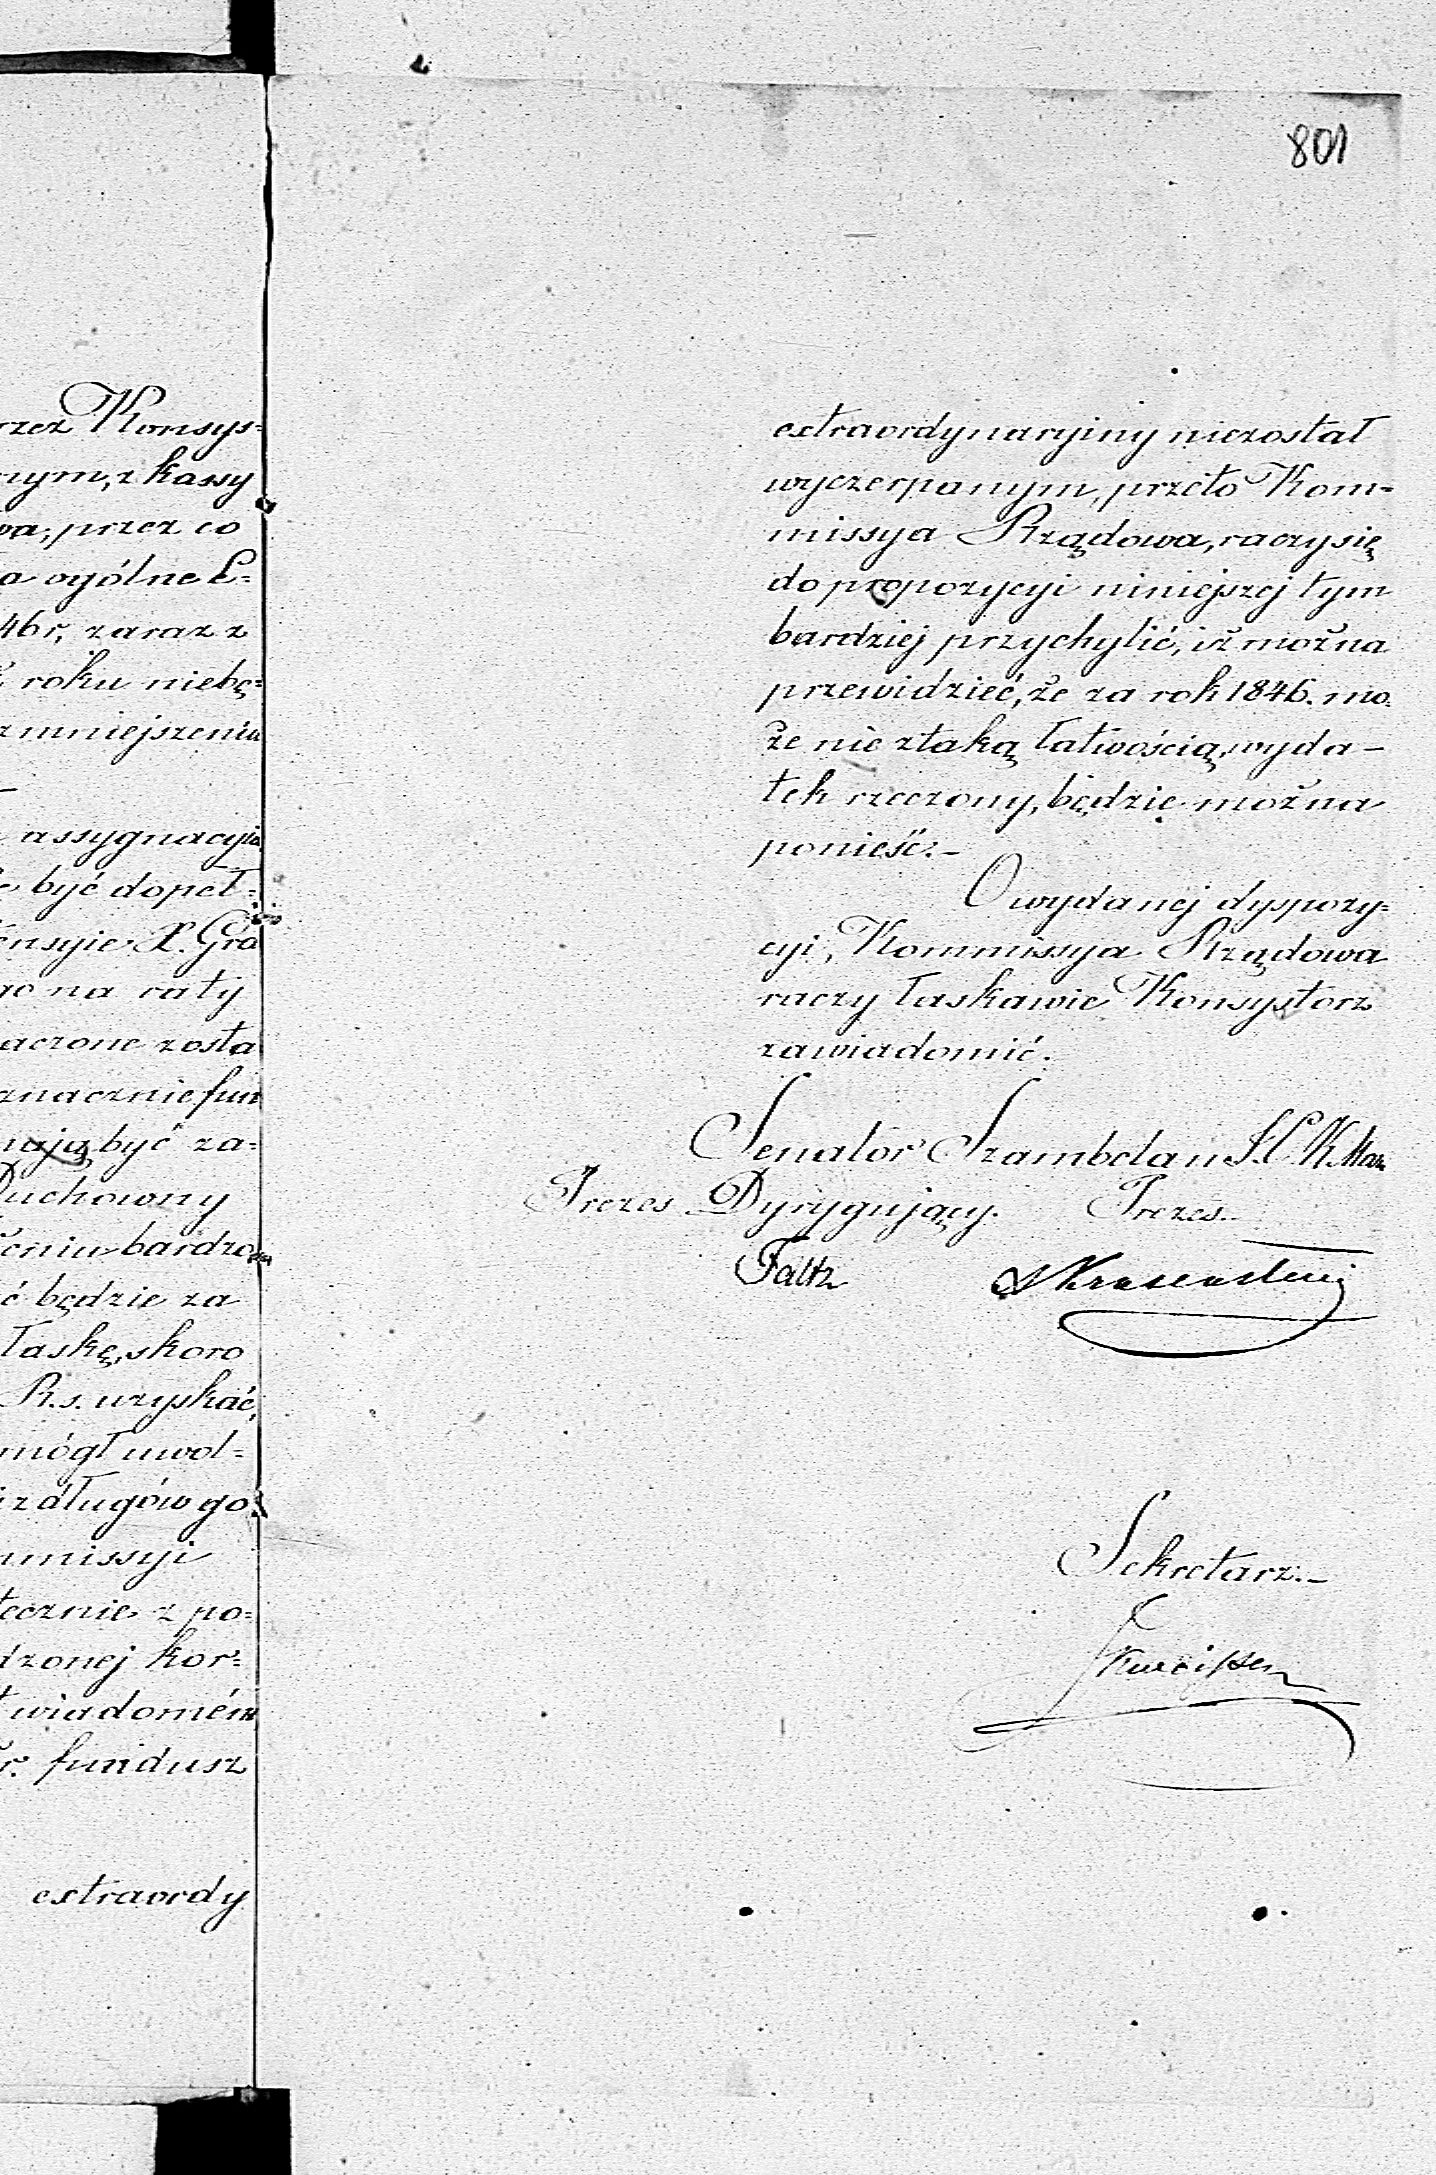 801
rzez Konsys=
nym, z kassy
wa, przez co
ła ogólne E=
46 r, zaraz z
roku niebę=
zmniejszeniu
assygnacyia
być dopeł=
Pensyie X. Gra
go na cały
aczone zosta
znacznie fun
mają być za=
Duchowny
żeniu bardzo
ć będzie za
łaskę, skoro
R.s. uzyskać,
mógł uwol=
i z długów go
mmissyi
tecznie z po=
dzonej kor=
t wiadomém
r. fundusz
extraordy
extraordynaryiny niezostał
wyczerpanym, przeto Kom=
missya Rządowa, raczy się
do propozycyi niniejszej tym
bardziej przychylić, iż można
przewidzieć, że za rok 1846. mo=
że nie ztaką łatwością, wyda-
tek rzeczony, będzie można
ponieść.-
O wydanej dyspozy=
cyi, Kommissya Rządowa
raczy łaskawie Konsystorz
zawiadomić.
Senator Szambelan
Prezes Dyrygujący. Prezes.
Faltz
Sekretarz.-